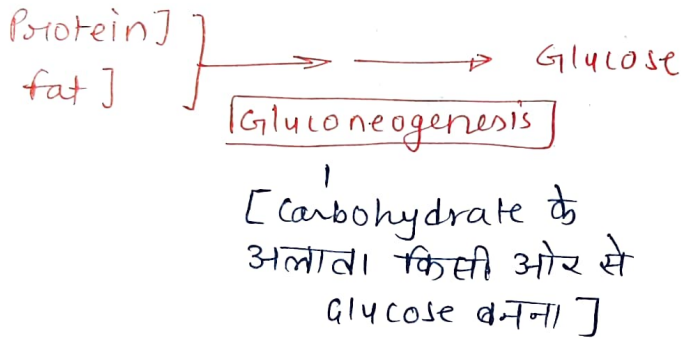 Protein]
fat]
Glucose
Gluconeogenesis
[Carbohydrate के
अलावा किसी ओर से
Glucose बनना]